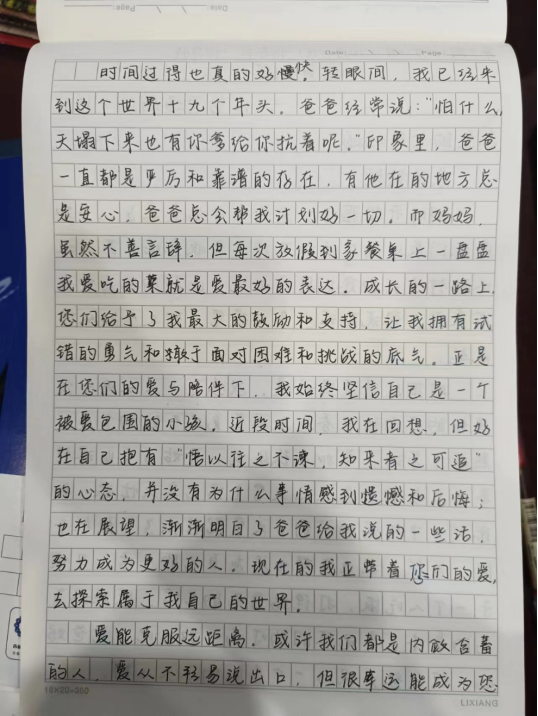 时间过得也真的好慢快。轻眼间，我已经来
到这个世界十九个年头。爸爸经常说："怕什么，
天塌下来也有你爹给你抗着呢。"印象里，爸爸
一直都是严厉和靠谱的存在，有他在的地方总
是安心。爸爸总会帮我计划好一切。而妈妈，
虽然不善言辞，但每次放假到家餐桌上一盘盘
我爱吃的菜就是爱最好的表达。成长的一路上，
您们给予了我最大的鼓励和支持，让我拥有试
错的勇气和敢于面对困难和挑战的底气。正是
在您们的爱与陪伴下，我始终坚信自己是一个
被爱包围的小孩。近段时间，我在回想，但好
在自己抱有"悟以往之不谏，知来者之可追"
的心态，并没有为什么事情感到遗憾和后悔；
也在展望，渐渐明白了爸爸给我说的一些话，
努力成为更好的人。现在的我正带着您们的爱，
去探索属于我自己的世界。
爱能克服远距离。或许我们都是内敛含蓄
的人，爱从不轻易说出口，但很幸运能成为您
18×20=360
LIXIANG